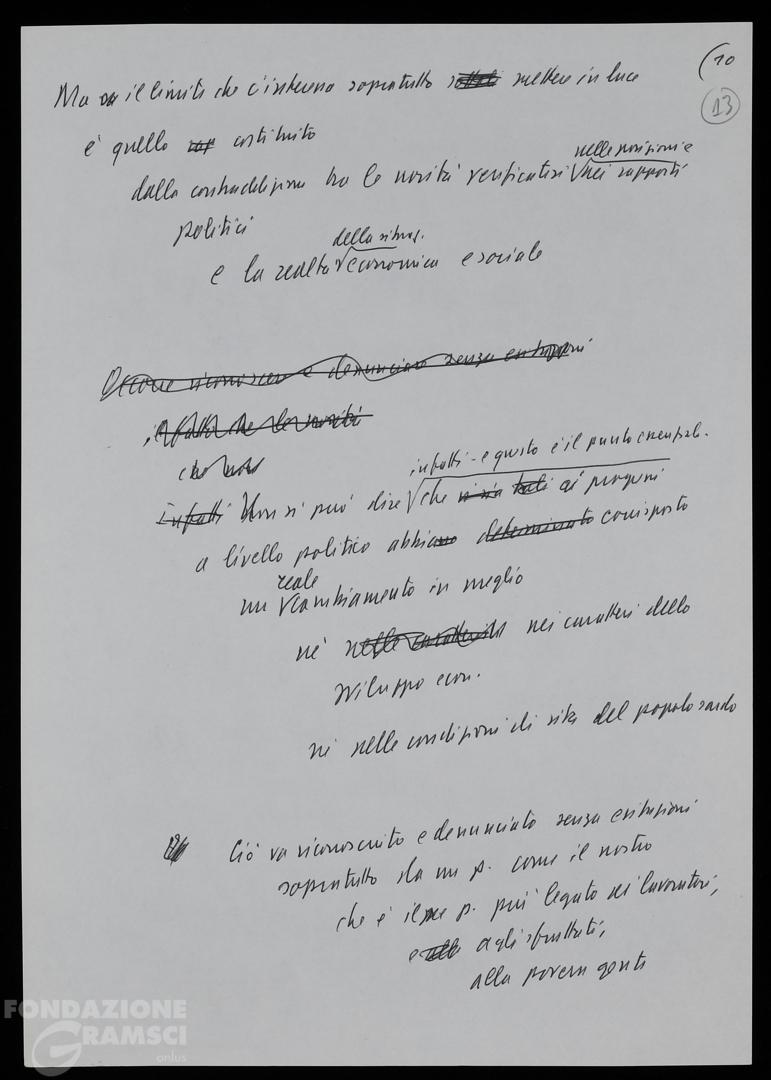 (10
13
Ma il limite che c'interessa sopratutto mettere in luce
è quello costituito
nelle posizioni e
dalla contraddizione tra le novità verificatesi nei rapporti
politici
della situaz.
e la realtà economica e sociale
Occorre riconoscere e denunciare senza esitazioni
il fatto che le novità
che non
infatti - e questo è il punto essenziale.
Infatti Non si può dire che ai progressi
a livello politico abbia determinato corrisposto
reale
un cambiamento in meglio
nè nelle caratteristi nei caratteri dello
sviluppo econ.
nè nelle condizioni di vita del popolo sardo
Ciò va riconosciuto e denunciato senza esitazioni
sopratutto da un p. come il nostro
che è il p. più legato ai lavoratori,
e agli sfruttati,
alla povera gente
FONDAZIONE
GRAMSCI
onlus